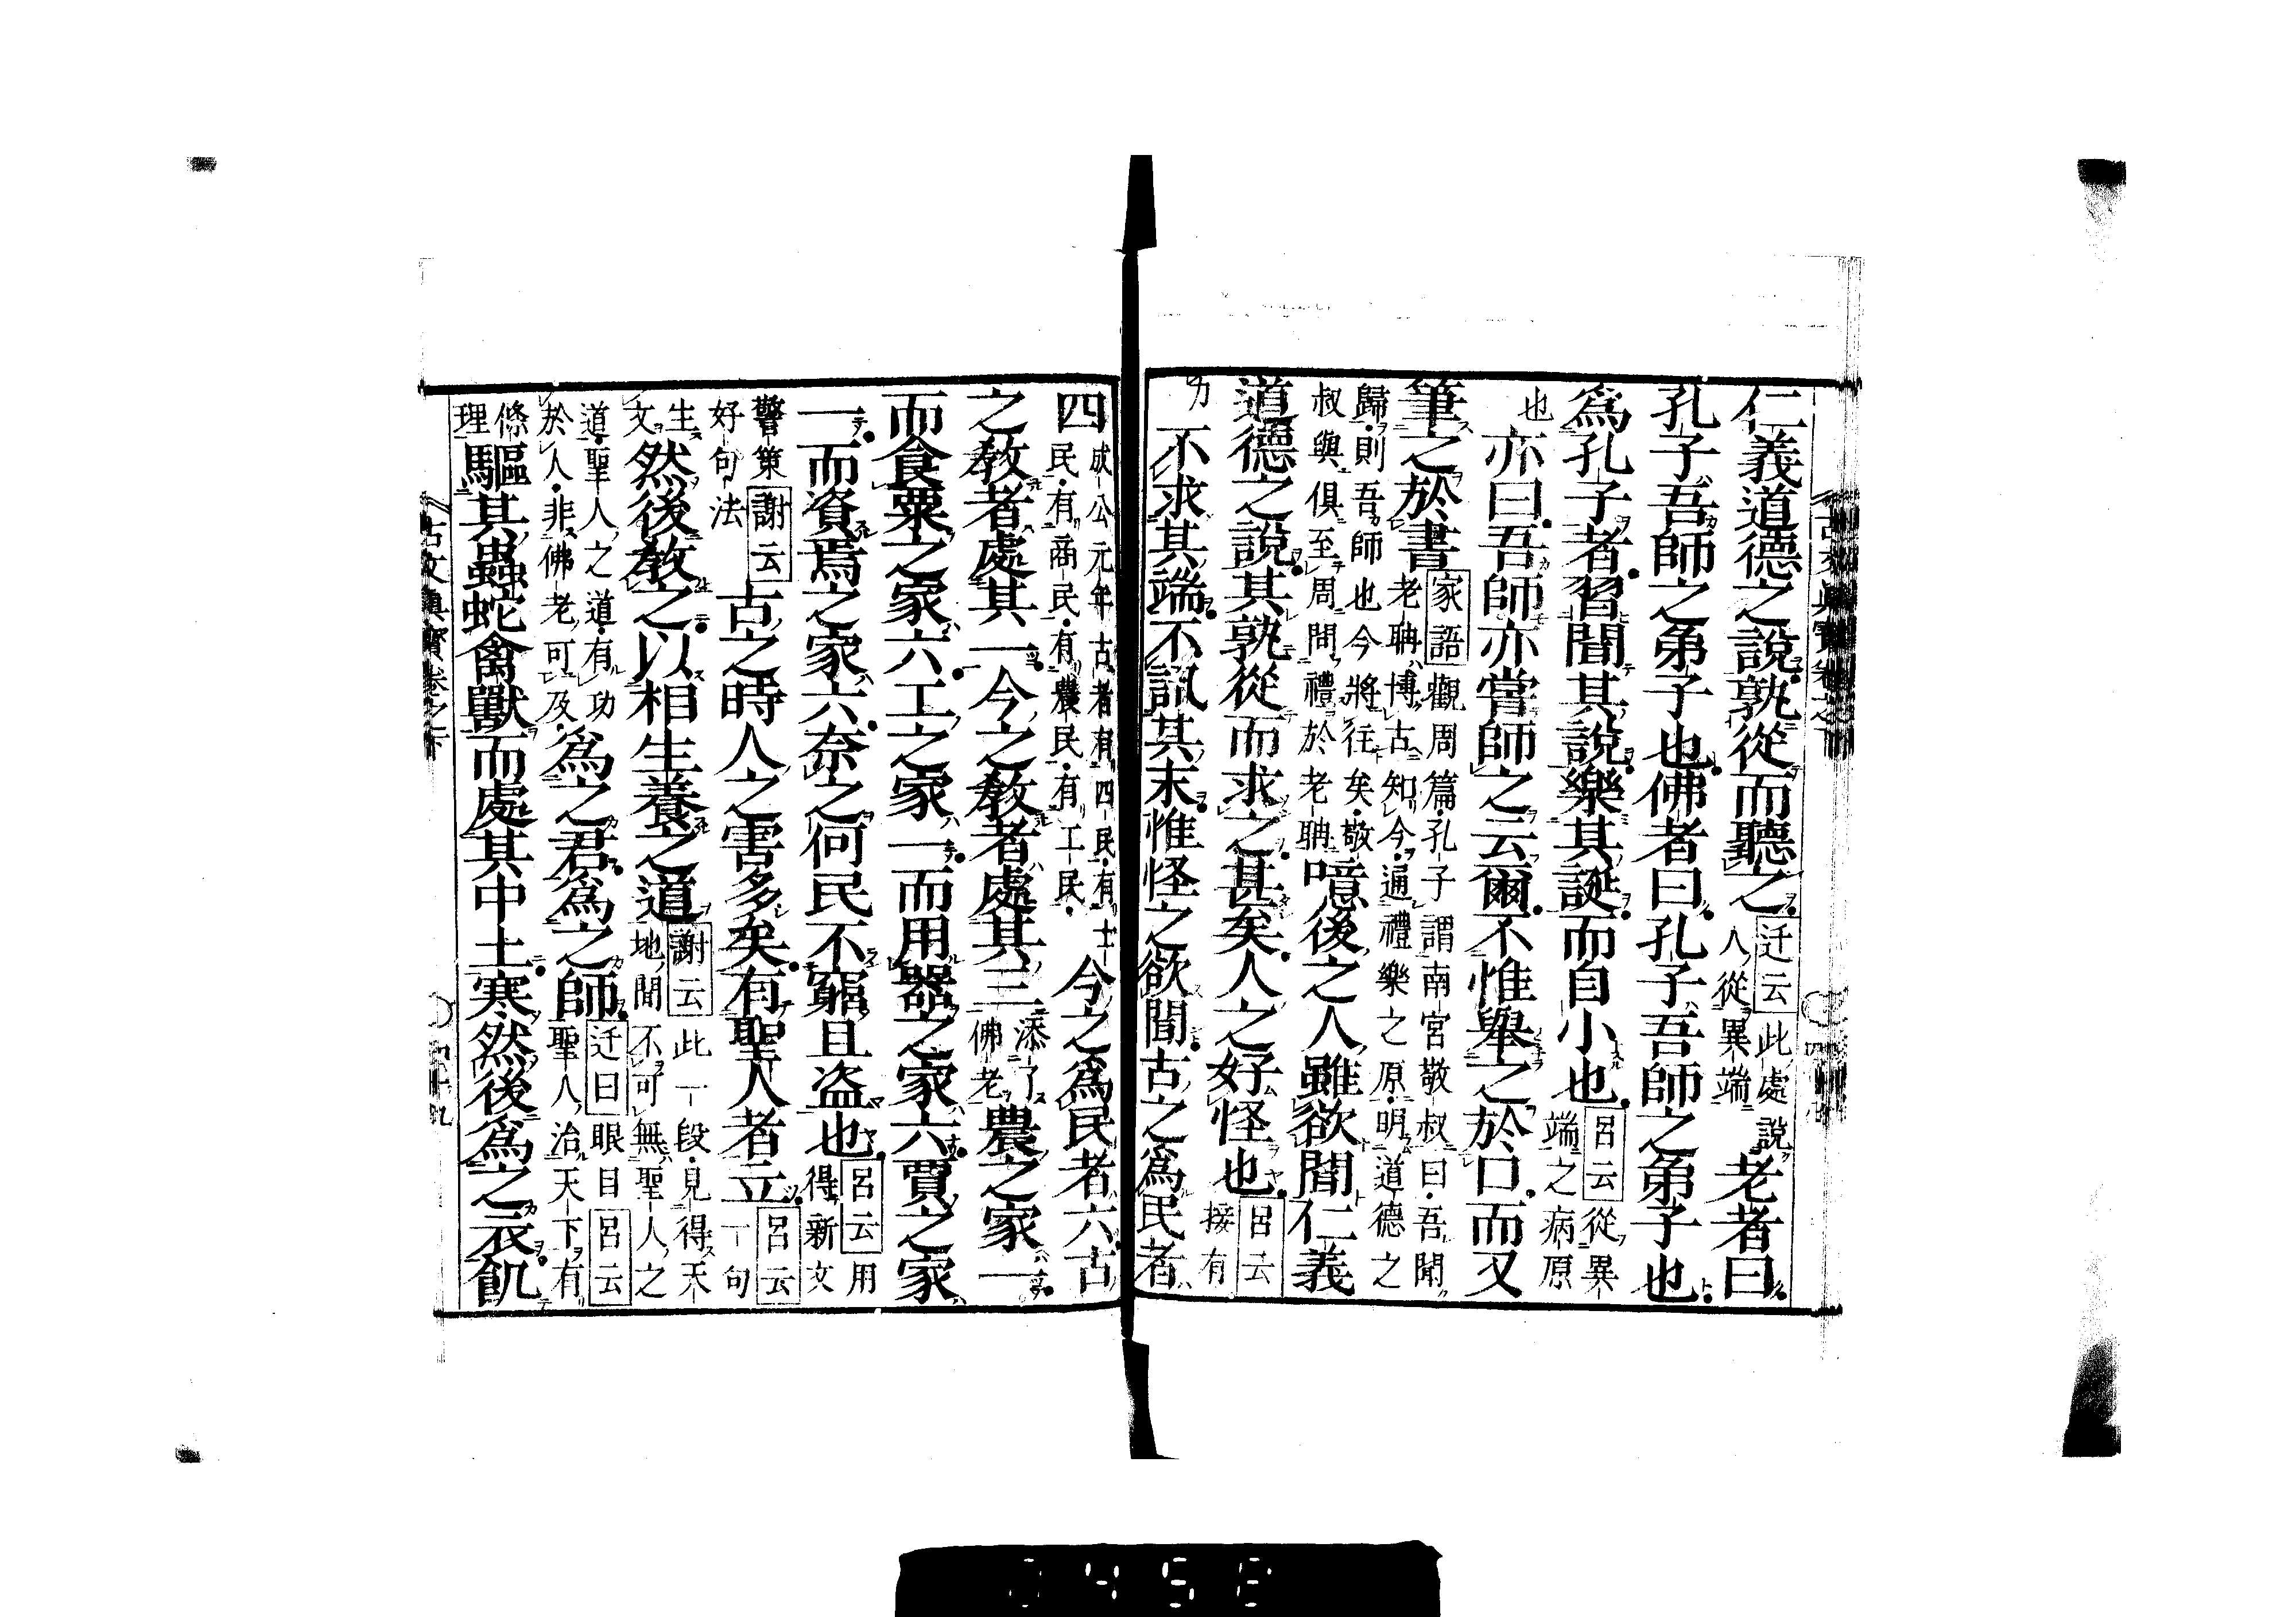 仁義道德之說孰從而聽之迂云此處說人從異端老者曰
孔子吾師之弟子也佛者曰孔子吾師之弟子也
爲孔子者習聞其說樂其誕而自小也呂云從異端之病原
也亦曰吾師亦嘗師之云爾不惟舉之於口而又
筆之於書家語觀周篇孔子謂南宮敬叔曰吾聞老聃博古知今通禮樂之原明道德之
歸則吾師也今將往矣敬叔與俱至周問禮於老聃噫後之人雖欲聞仁義
道德之說其孰從而求之甚矣人之好怪也呂云接有
力不求其端不訊其末惟怪之欲聞古之爲民者
四成公元年古者有四民有士民有商民有農民有工民今之爲民者六古
之敎者處其一今之敎者處其三添了佛老農之家一
而食粟之家六工之家一而用器之家六賈之家
一而資焉之家六奈之何民不窮且盗也呂云用得新文
警策好句法謝云古之時人之害多矣有聖人者立呂云一句
生文然後敎之以相生養之道謝云此一段見得天地間不可無聖人之
道聖人之道有功於人非佛老可及爲之君爲之師迂曰眼目呂云聖人治天下有
條理驅其蟲蛇禽獸而處其中土寒然後爲之衣飢
古文眞寳卷之下